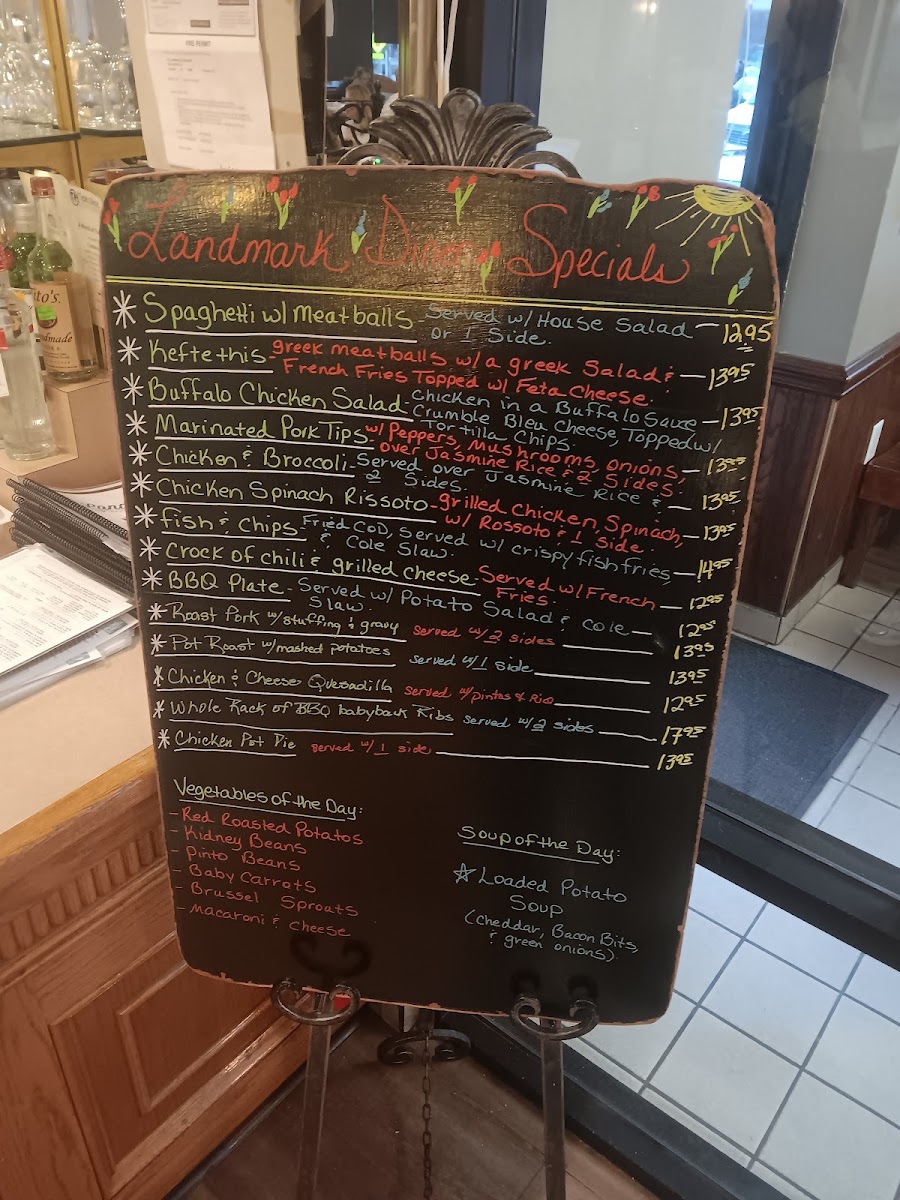 FIRE PERMIT
Landmark Diner Specials
* Spaghetti w/ Meatballs Served w/ House Salad or 1 Side. — 12.95
* Keftethis - greek meatballs w/ a greek Salad & French Fries Topped w/ Feta Cheese. — 13.95
* Buffalo Chicken Salad - Chicken in a Buffalo Sauce Crumble Bleu Cheese, Topped w/ Tortilla Chips. — 13.95
* Marinated Pork Tips w/ Peppers, Mushrooms, onions, over Jasmine Rice & 2 Sides. — 13.95
* Chicken & Broccoli - Served over Jasmine Rice & 2 Sides. — 13.95
* Chicken Spinach Rissoto - grilled Chicken, Spinach, w/ Rossoto & 1 Side. — 13.95
* Fish & Chips Fried COD, Served w/ crispy fish fries, & Cole Slaw. — 14.95
* Crock of chili & grilled cheese - Served w/ French Fries. — 12.95
* BBQ Plate - Served w/ Potato Salad & Cole Slaw. — 12.95
* Roast Pork w/ stuffing & gravy served w/ 2 sides — 13.95
* Pot Roast w/ mashed potatoes served w/ 1 side — 13.95
* Chicken & Cheese Quesadilla served w/ pintos & Rice — 12.95
* Whole Rack of BBQ babyback Ribs served w/ 2 sides — 17.95
* Chicken Pot Pie served w/ 1 side — 13.95
Vegetables of the Day:
- Red Roasted Potatos
- Kidney Beans
- Pinto Beans
- Baby Carrots
- Brussel Sprouts
- Macaroni & cheese
Soup of the Day:
☆ Loaded Potato
Soup
(Cheddar, Bacon Bits,
& green onions).